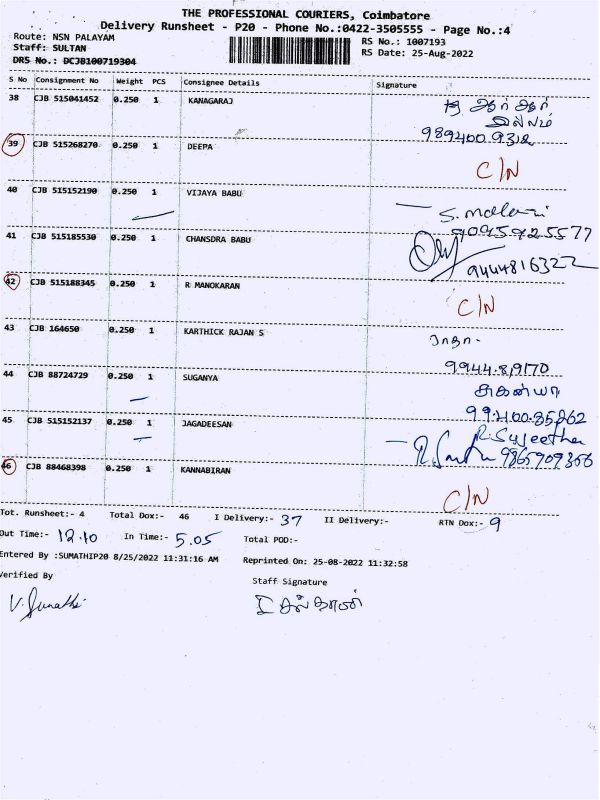 THE PROFESSIONAL COURIERS, Coimbatore
Delivery Runsheet - P20 - Phone No.:0422-3505555 - Page No.:4
Route: NSN PALAYAM
RS No.: 1007193
Staff: SULTAN
RS Date: 25-Aug-2022
DRS No.: DCJB100719304
S No Consignment No Weight PCS Consignee Details Signature
38 CJB 515041452 0.250 1 KANAGARAJ
இல்லம்
989400 9312
39 CJB 515268270 0.250 1 DEEPA C/N
40 CJB 515152190 0.250 1 VIJAYA BABU
9095925577
41 CJB 515185530 0.250 1 CHANSDRA BABU
9444816322
42 CJB 515188345 0.250 1 R MANOKARAN C/N
43 CJB 164650 0.250 1 KARTHICK RAJAN S ராதா-
9944.819170
44 CJB 88724729 0.250 1 SUGANYA சுகன்யா
99400.85262
45 CJB 515152137 0.250 1 JAGADEESAN R.Sujeetha
9865909366
46 CJB 88468398 0.250 1 KANNABIRAN C/N
Tot. Runsheet:- 4 Total Dox:- 46 I Delivery:- 37 II Delivery:- RTN Dox:- 9
Out Time:- 12.10 In Time:- 5.05 Total POD:-
Entered By :SUMATHIP20 8/25/2022 11:31:16 AM Reprinted On: 25-08-2022 11:32:58
Verified By Staff Signature